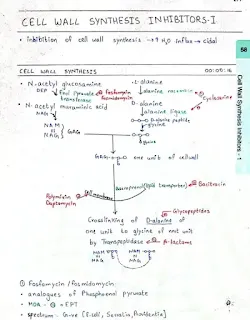 CELL WALL SYNTHESIS INHIBITORS-I
• inhibition of cell wall synthesis → ↑ H₂O influx → cidal
58
Cell Wall Synthesis Inhibitors - 1
CELL WALL SYNTHESIS
00:05:16
• N-acetyl glucosamine
L-alanine
PEP
Enol pyruvate transferase
⊖ Fosfomycin
Fosmidomycin
alanine racemase
⊖ Cycloserine
• N-acetyl muraminic acid
D-alanine
NAG
alanine ligase
NAM
NAG
GAG
D-alanine peptide
glycine
glycine
GAG
one unit of cell wall
Polymixin
Daptomycin
cell membrane
Bactoprenol (lipid transporter)
⊖ Bacitracin
⊖ Glycopeptides
Crosslinking of D-alanine of
one unit to glycine of next unit
by Transpeptidase ⊖ β-lactams
NAM
NAG
NAM
NAG
① Fosfomycin / Fosmidomycin:
• analogues of Phosphoenol pyruvate
• MOA - ⊖ EPT
• spectrum - G-ve [E-coli, Serratia, Providentia]